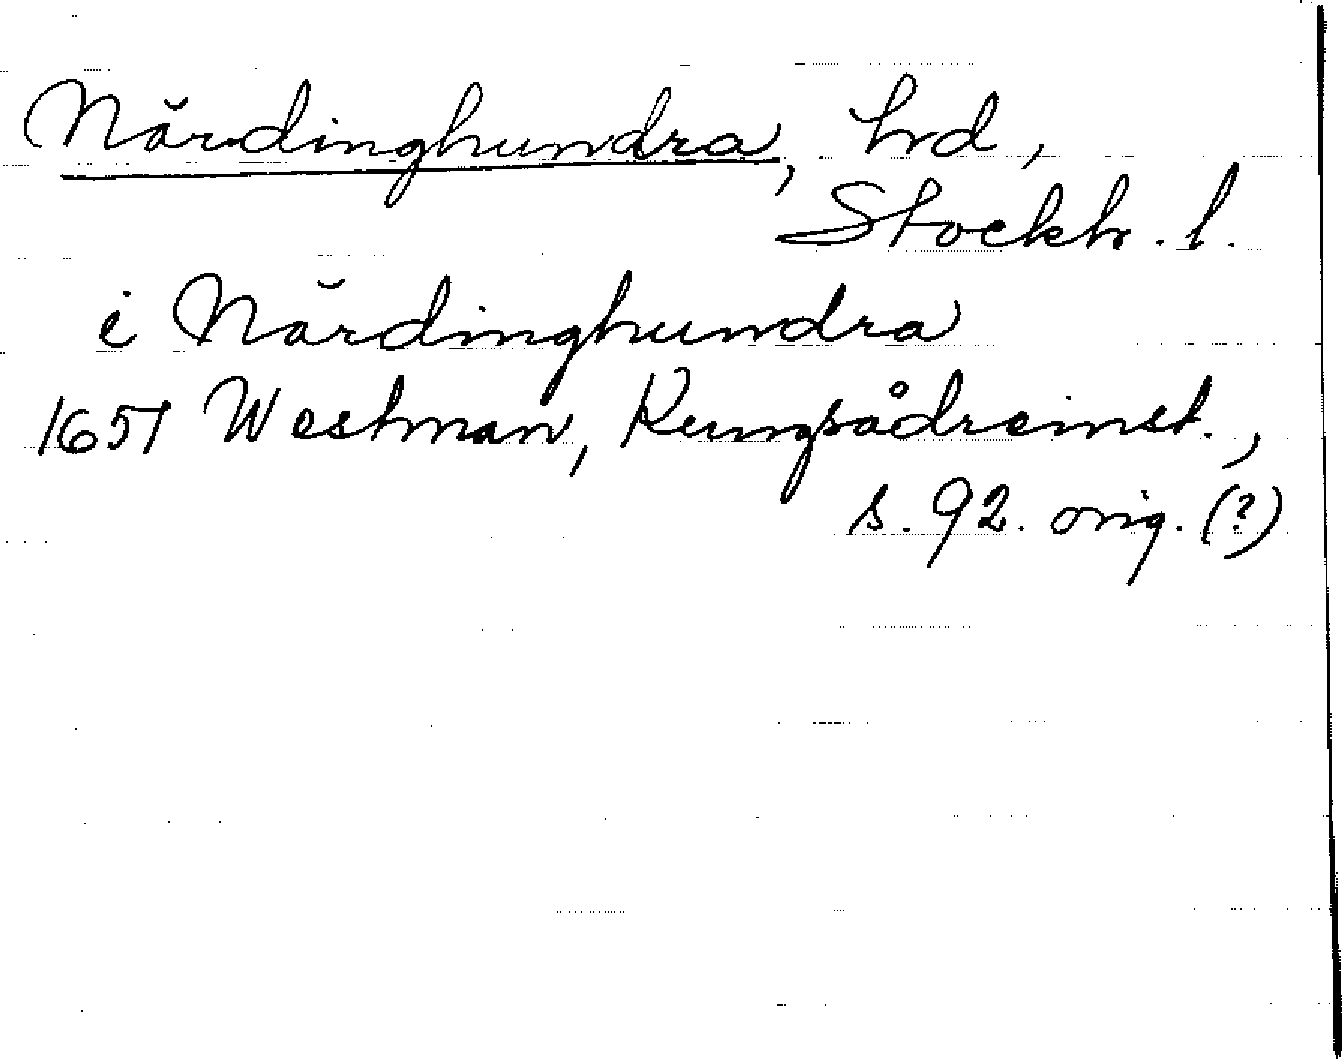 Närdinghundra, hrd,
Stockh. l.
i Närdinghundra
1651 Westman, Kungsådreinst.,
s. 92. orig. (?)